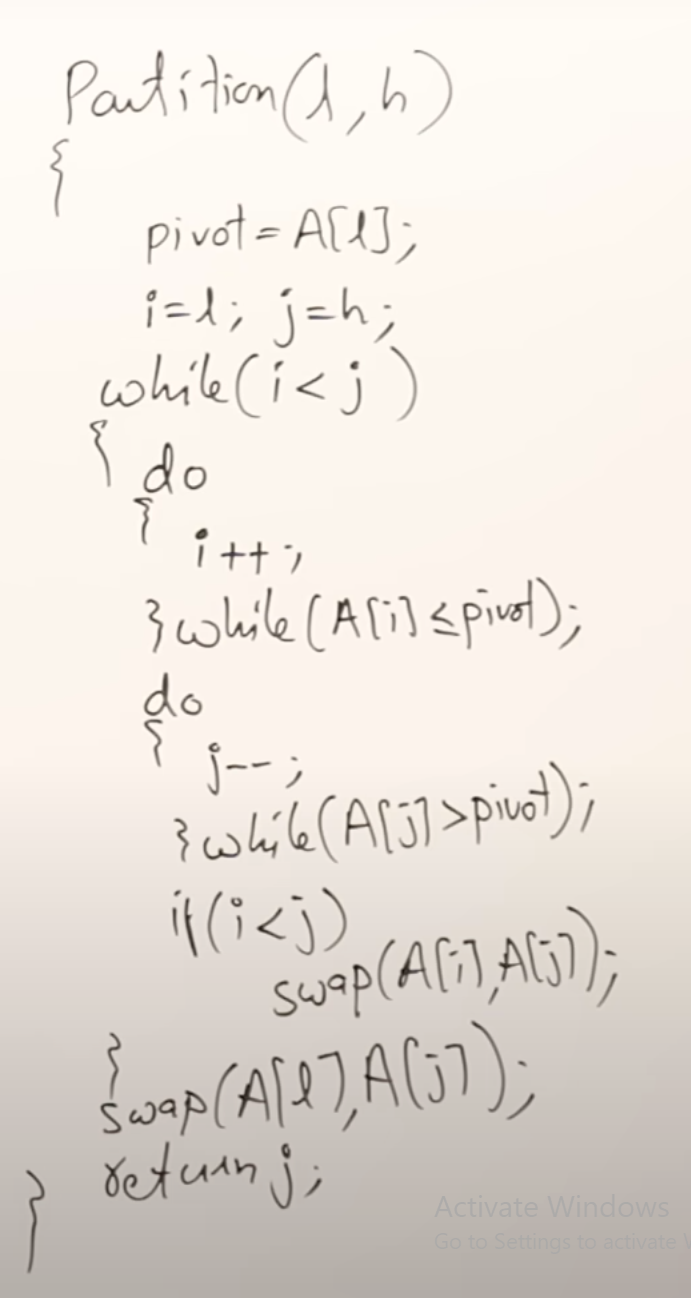 Partition(l,h)
{
pivot=A[l];
i=l; j=h;
while(i<j)
{ do
{ i++;
}while(A[i]≤pivot);
do
{ j--;
}while(A[j]>pivot);
if(i<j)
swap(A[i],A[j]);
}
swap(A[l],A[j]);
return j;
}
Activate Windows
Go to Settings to activate